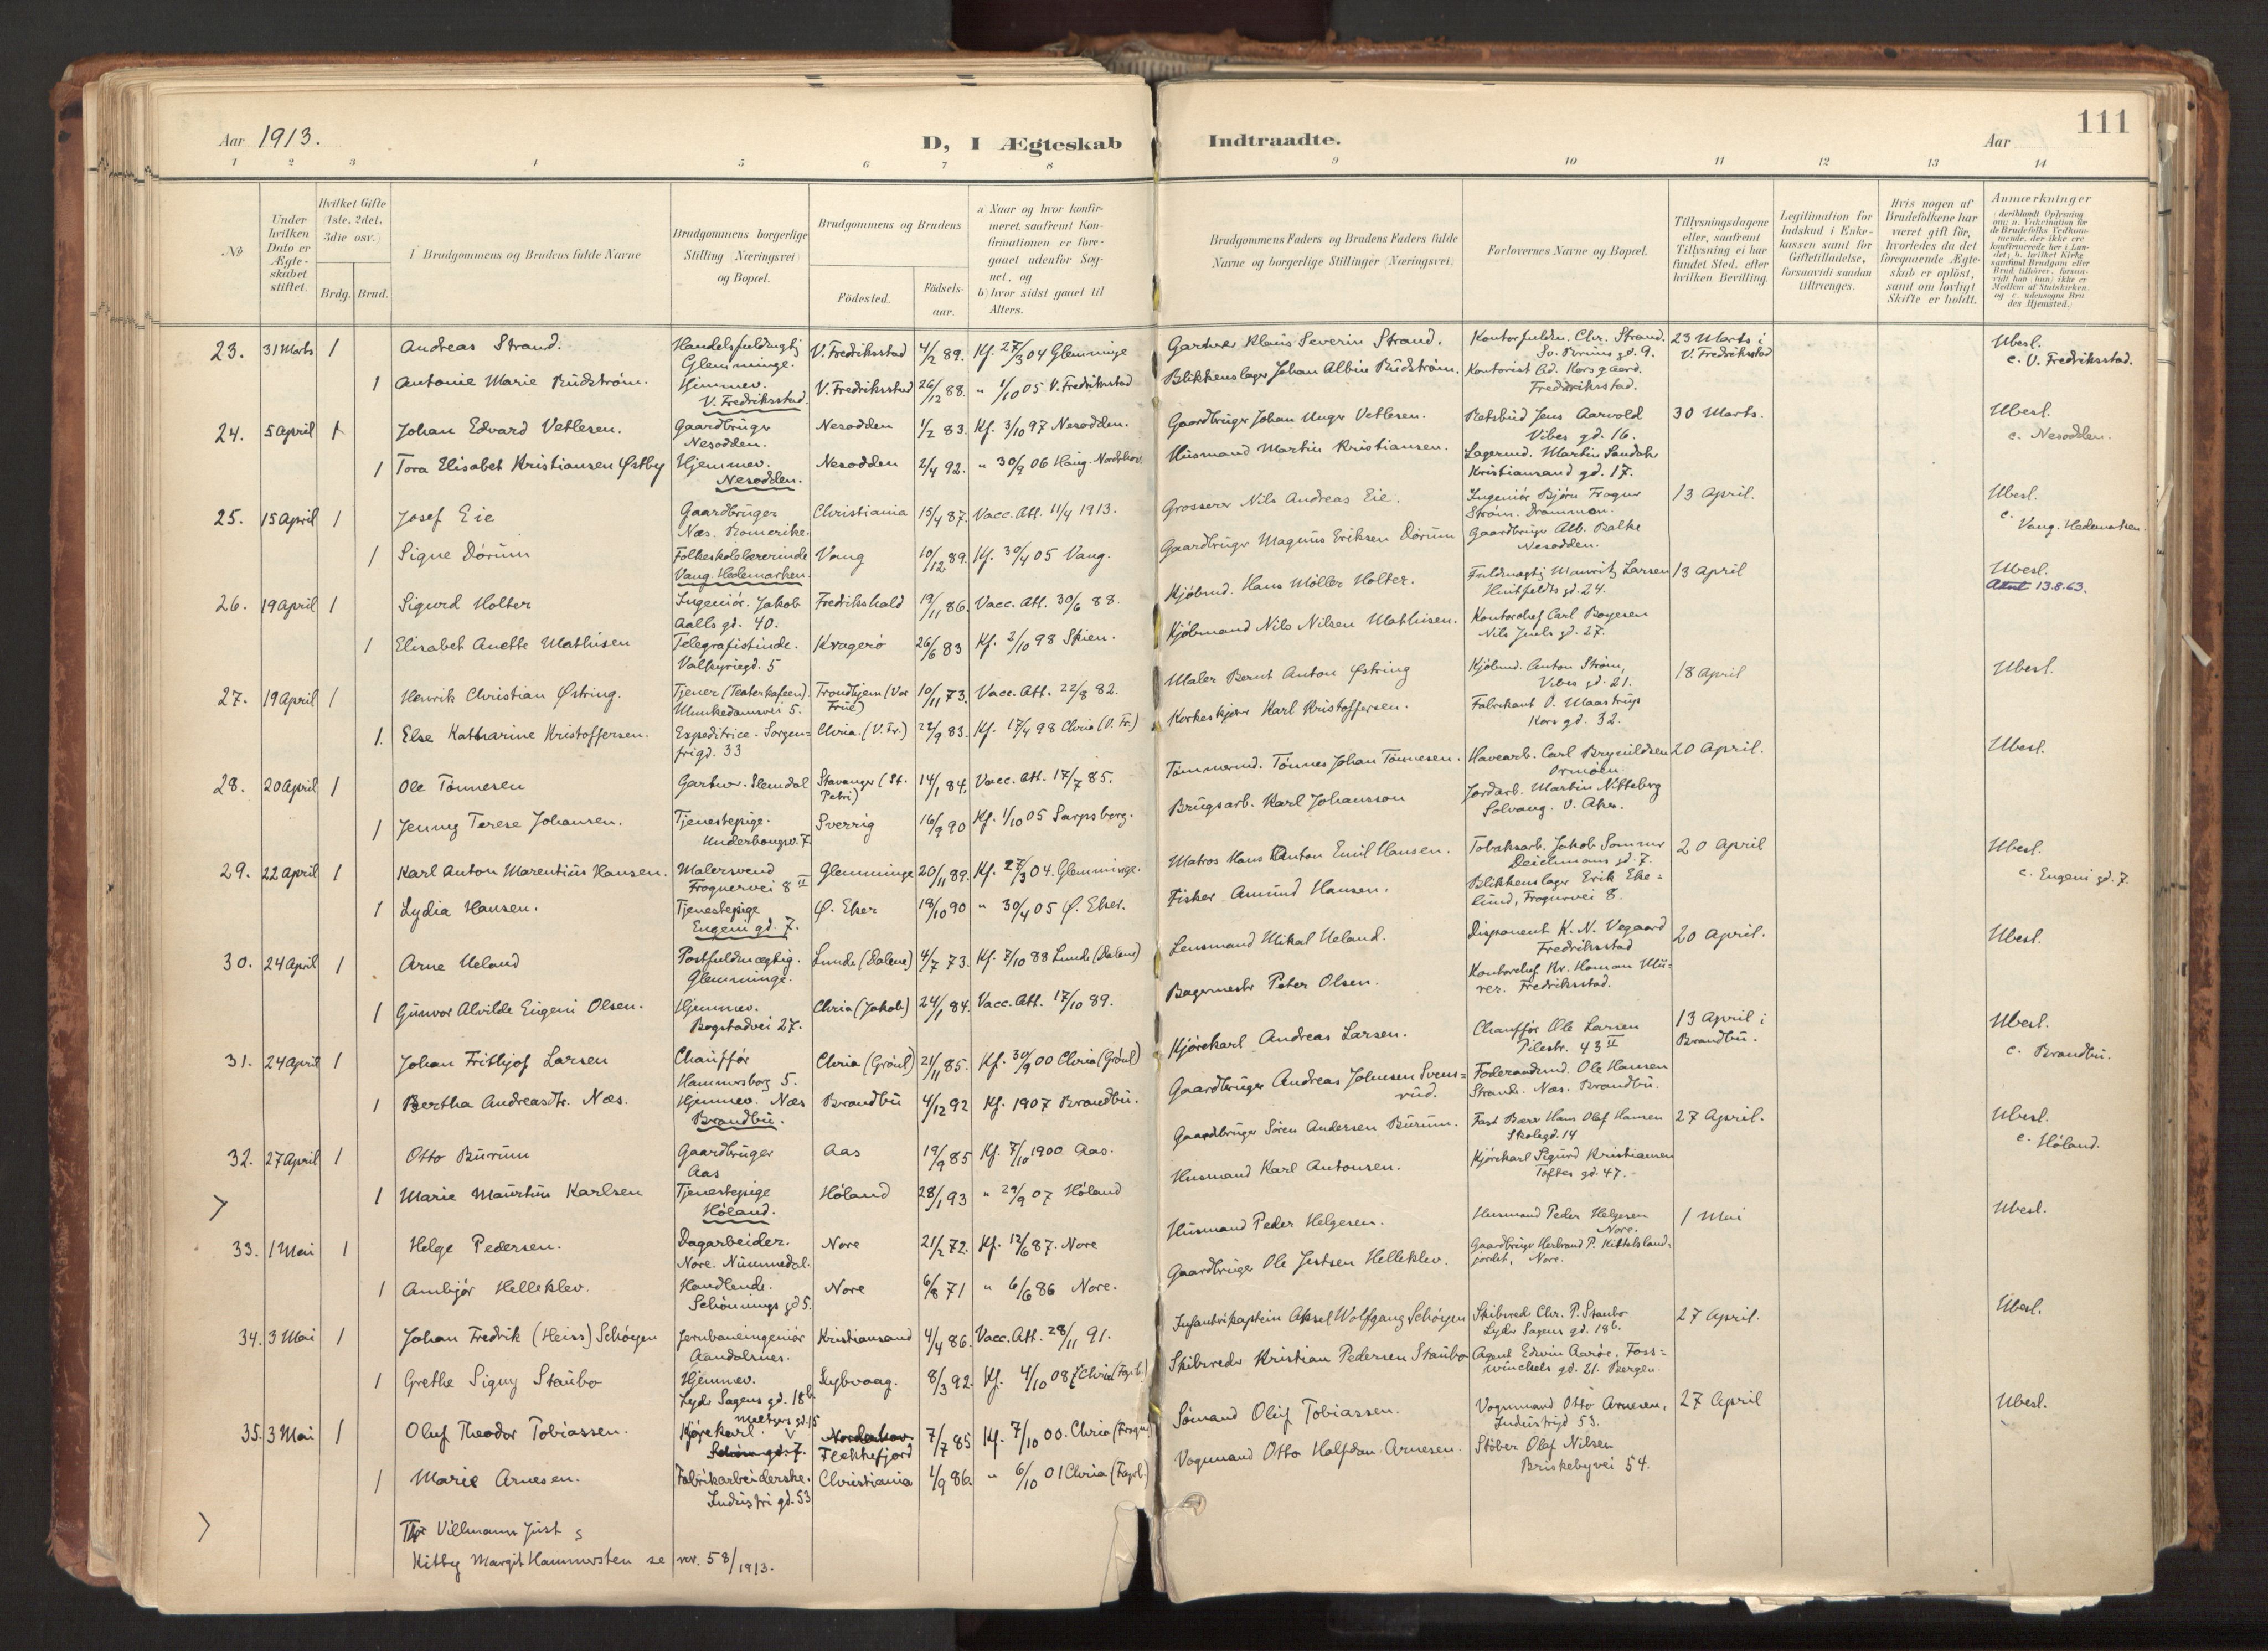 111
Aar 1913.
D, I Ægteskab Indtraadte.
Aar
1 2 3 4 5 6 7 8 9 10 11 12 13 14
№
Under hvilken Dato er Ægteskabet stiftet.
Hvilket Gifte (1ste, 2det, 3die osv.)
Brdg. Brud.
Brudgommens og Brudens fulde Navne
Brudgommens borgerlige Stilling (Næringsvei) og Bopæl.
Brudgommens og Brudens
Födested. Födsels-aar.
a) Naar og hvor konfirmeret, saafremt Konfirmationen er foregaaet udenfor Sognet, og
b) hvor sidst gaaet til Alters.
Brudgommens Faders og Brudens Faders fulde Navne og borgerlige Stillinger (Næringsvei)
Forlovernes Navne og Bopæl.
Tillysningsdagene eller, saafremt Tillysning ei har fundet Sted, efter hvilken Bevilling.
Legitimation for Indskud i Enkekassen samt for Giftetilladelse, forsaavidt saadan tiltrænges.
Hvis nogen af Brudefolkene har været gift för, hvorledes da det foregaaende Ægteskab er oplöst, samt om lovligt Skifte er holdt.
Anmærkninger
(deriblandt Oplysning om: a. Vakcination for de Brudefolks Vedkommende, der ikke ere konfirmerede her i Landet; b. hvilket Kirkesamfund Brudgom eller Brud tilhörer, forsaavidt han (hun) ikke er Medlem af Statskirken, og c. udensogns Brudes Hjemsted.)
23. 31 Marts 1 Andreas Strand. Handelsfuldmægtig Glemminge. V. Fredriksstad 4/2 89. Kf. 27/3 04 Glemminge Gartner Klaus Severin Strand. Kontorfuldm. Chr. Strand. gd. 9. 23 Marts i V. Fredriksstad Ubesl. c. V. Fredriksstad.
1 Antonie Marie Rudström. Hjemmev. V. Fredriksstad. V. Fredriksstad 26/12 88. " 1/10 05 V. Fredriksstad Blikkenslager Johan Albin Rudström. Kontorist Korsgaard. Fredriksstad.
24. 5 April 1 Johan Edvard Vetlesen. Gaardbruger Nesodden. Nesodden 1/2 83. Kf. 3/10 97 Nesodden. Gaardbruger Johan Unger Vetlesen. Retsbud Jens Aarvold Vibes gd. 16. 30 Marts. Ubesl. c. Nesodden.
1 Tora Elisabet Kristiansen Østby Hjemmev. Nesodden. Nesodden 2/4 92. " 30/9 06 Husmand Martin Kristiansen. Lagermd. Martin Kristiansand gd. 17.
25. 15 April 1 Josef Eie Gaardbruger Næs. Romerike. Christiania 15/4 87. Vacc. Att. 11/4 1913. Grosserer Nils Andreas Eie. Ingeniör Björn Strøm. Drammen. 13 April. Ubesl. c. Vang. Hedemarken.
1 Signe Dörum Folkeskolelærerinde Vang. Hedemarken. Vang 10/12 89. Kf. 30/4 05 Vang. Gaardbruger Magnus Eriksen Dörum Gaardbruger Alb. Balke Nesodden.
26. 19 April 1 Sigurd Holter Ingeniör. Jakob Aalls gd. 40. Fredrikshald 19/11 86. Vacc. Att. 30/6 88. Kjöbmd. Hans Möller Holter. Fuldmægtig Mauritz Larsen Huitfeldts gd. 24. 13 April Ubesl. Attest 13.8.63.
1 Elisabet Anette Mathisen Telegrafistinde. Valkyriegd. 5 Kragerö 26/6 83 Kf. 2/10 98 Skien. Kjöbmand Nils Nilsen Mathisen. Kontorchef Carl Boyesen Nils Juels gd. 27.
27. 19 April 1 Henrik Christian Østring. Tjener (Teaterkafeen). Munkedamsvei 5. Trondhjem (Vor Frue) 10/11 73. Vacc. Att. 22/8 82. Maler Bernt Anton Østring Kjöbmd. Anton Ström, Vibes gd. 21. 18 April Ubesl.
1. Else Katharine Kristoffersen. Expeditrice. Sorgenfrigd. 33 Chria. (V. Fr.) 22/9 83. Kf. 17/4 98 Chria (V. Fr.) Korkeskjærer Karl Kristoffersen. Fabrikant O. Maastrup Kors gd. 32.
28. 20 April 1 Ole Tönnesen Gartner. Slemdal Stavanger (St. Petri) 14/1 84. Vacc. Att. 17/7 85. Tömmermd. Tönnes Johan Tönnesen. Havearb. Carl Brynildsen Ormöen 20 April. Ubesl.
1 Jenny Terese Johansen. Tjenestepige. Underhaugsv. 7. Sverrig 16/9 90 Kf. 1/10 05 Sarpsborg. Brugsarb. Karl Johansson Jordarb. Martin Nitteberg Solvang. V. Aker.
29. 22 April 1 Karl Anton Marentius Hansen. Malersvend Frognervei 8 II Glemminge 20/11 89. Kf. 27/3 04. Glemminge. Matros Hans Anton Emil Hansen. Tobaksarb. Jakob Sommer Deichmans gd. 7. 20 April Ubesl. c. Eugeni gd. 7.
1 Lydia Hansen. Tjenestepige Eugeni gd. 7. Ø. Eker 18/10 90 " 30/4 05 Ø. Eker. Fisker Amund Hansen. Blikkenslager Erik Ekelund, Frognervei 8.
30. 24 April 1 Arne Ueland Postfuldmægtig. Glemminge. Lunde (Dalene) 4/7 73. Kf. 7/10 88 Lunde (Dalene) Lensmand Mikal Ueland. Disponent K. N. Vegaard Fredriksstad 20 April. Ubesl.
1 Gunvor Alvilde Eugeni Olsen. Hjemmev. Bogstadvei 27. Chria (Jakob) 24/1 84. Vacc. Att. 17/10 89. Bagermestr Peter Olsen. Kontorchef Kr. Homan Fredriksstad.
31. 24 April 1 Johan Frithjof Larsen Chaufför Hammersborg 5. Chria (Grönl) 21/11 85. Kf. 30/9 00 Chria (Grönl) Kjörekarl Andreas Larsen. Chaufför Ole Larsen Pilestr. 43 II 13 April i Brandbu. Ubesl. c. Brandbu.
1 Bertha Andreasdtr. Næs. Hjemmev. Næs Brandbu. Brandbu 4/12 92 Kf. 1907 Brandbu. Gaardbruger Andreas Johnsen Svensrud. Föderaadsmd. Ole Hansen Strande. Næs. Brandbu.
32. 27 April 1 Otto Burum Gaardbruger Aas Aas 19/9 85 Kf. 7/10 1900 Aas. Gaardbruger Sören Andersen Burum. Fast Bærer Hans Olaf Hansen Skolegd. 14 27 April. Ubesl. c. Höland.
1 Marie Maurtine Karlsen Tjenestepige Höland. Höland 28/1 93 " 29/9 07 Höland Husmand Karl Antonsen. Kjörekarl Sigurd Kristiansen Toftes gd. 47.
33. 1 Mai 1 Helge Pedersen. Dagarbeider. Nore. Nummedal. Nore 21/2 72. Kf. 12/6 87. Nore Husmand Peder Helgesen. Husmand Peder Helgesen Nore. 1 Mai Ubesl.
1 Ambjör Helleklev. Handlende. Schönnings gd 5. Nore 6/8 71 " 6/6 86 Nore. Gaardbruger Ole Jestsen Helleklev. Gaardbruger Herbrand P. Kittelslandjordet, Nore.
34. 3 Mai 1 Johan Fredrik (Heiss) Schöyen Jernbaneingeniör Aandalsnes. Kristiansand 4/4 86. Vacc. Att. 28/11 91. Infantrikaptein Aksel Wolfgang Schöyen Skibsred. Chr. P. Staubo Lyder Sagens gd. 18b. 27 April. Ubesl.
1 Grethe Signy Staubo Hjemmev. Lyder Sagens gd. 18b Lybvaag. 8/3 92. Kf. 4/10 08 Chria (Fagerb.) Skibsreder Kristian Pedersen Staubo Agent Edvin Aaröe, Fosswinckels gd. 21. Bergen.
35. 3 Mai 1 Oluf Theodor Tobiassen. Kjörekarl. Meltzers gd. 15 gd. 7. Norderhov Flekkefjord 7/7 85 Kf. 7/10 00. Chria (Frogner) Sömand Oluf Tobiassen. Vognmand Otto Arnesen, Industrigd 53. 27 April Ubesl.
1 Marie Arnesen. Fabrikarbeiderske. Industri gd. 53 Christiania 1/9 86. " 6/10 01 Chria (Fagerb.) Vognmand Otto Halfdan Arnesen. Stöber Olaf Nilsen Briskebyvei 54.
Thor Villmann Just &
Kitty Margit Hammersten se nr. 58/1913.